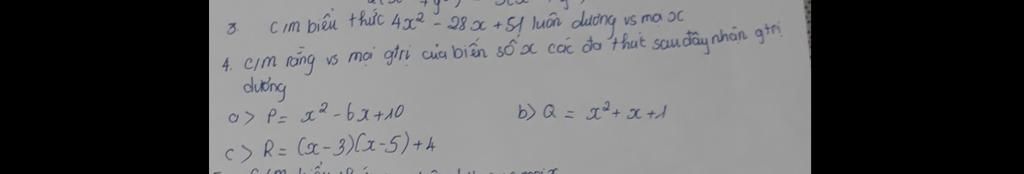 3. C/m biểu thức 4x² - 28x + 51 luôn dương vs mọi x
4. C/m rằng vs mọi gtrị của biến số x các đa thức sau đây nhận gtrị
dương
a> P = x² - 6x + 10 b> Q = x² + x + 1
c> R = (x - 3)(x - 5) + 4